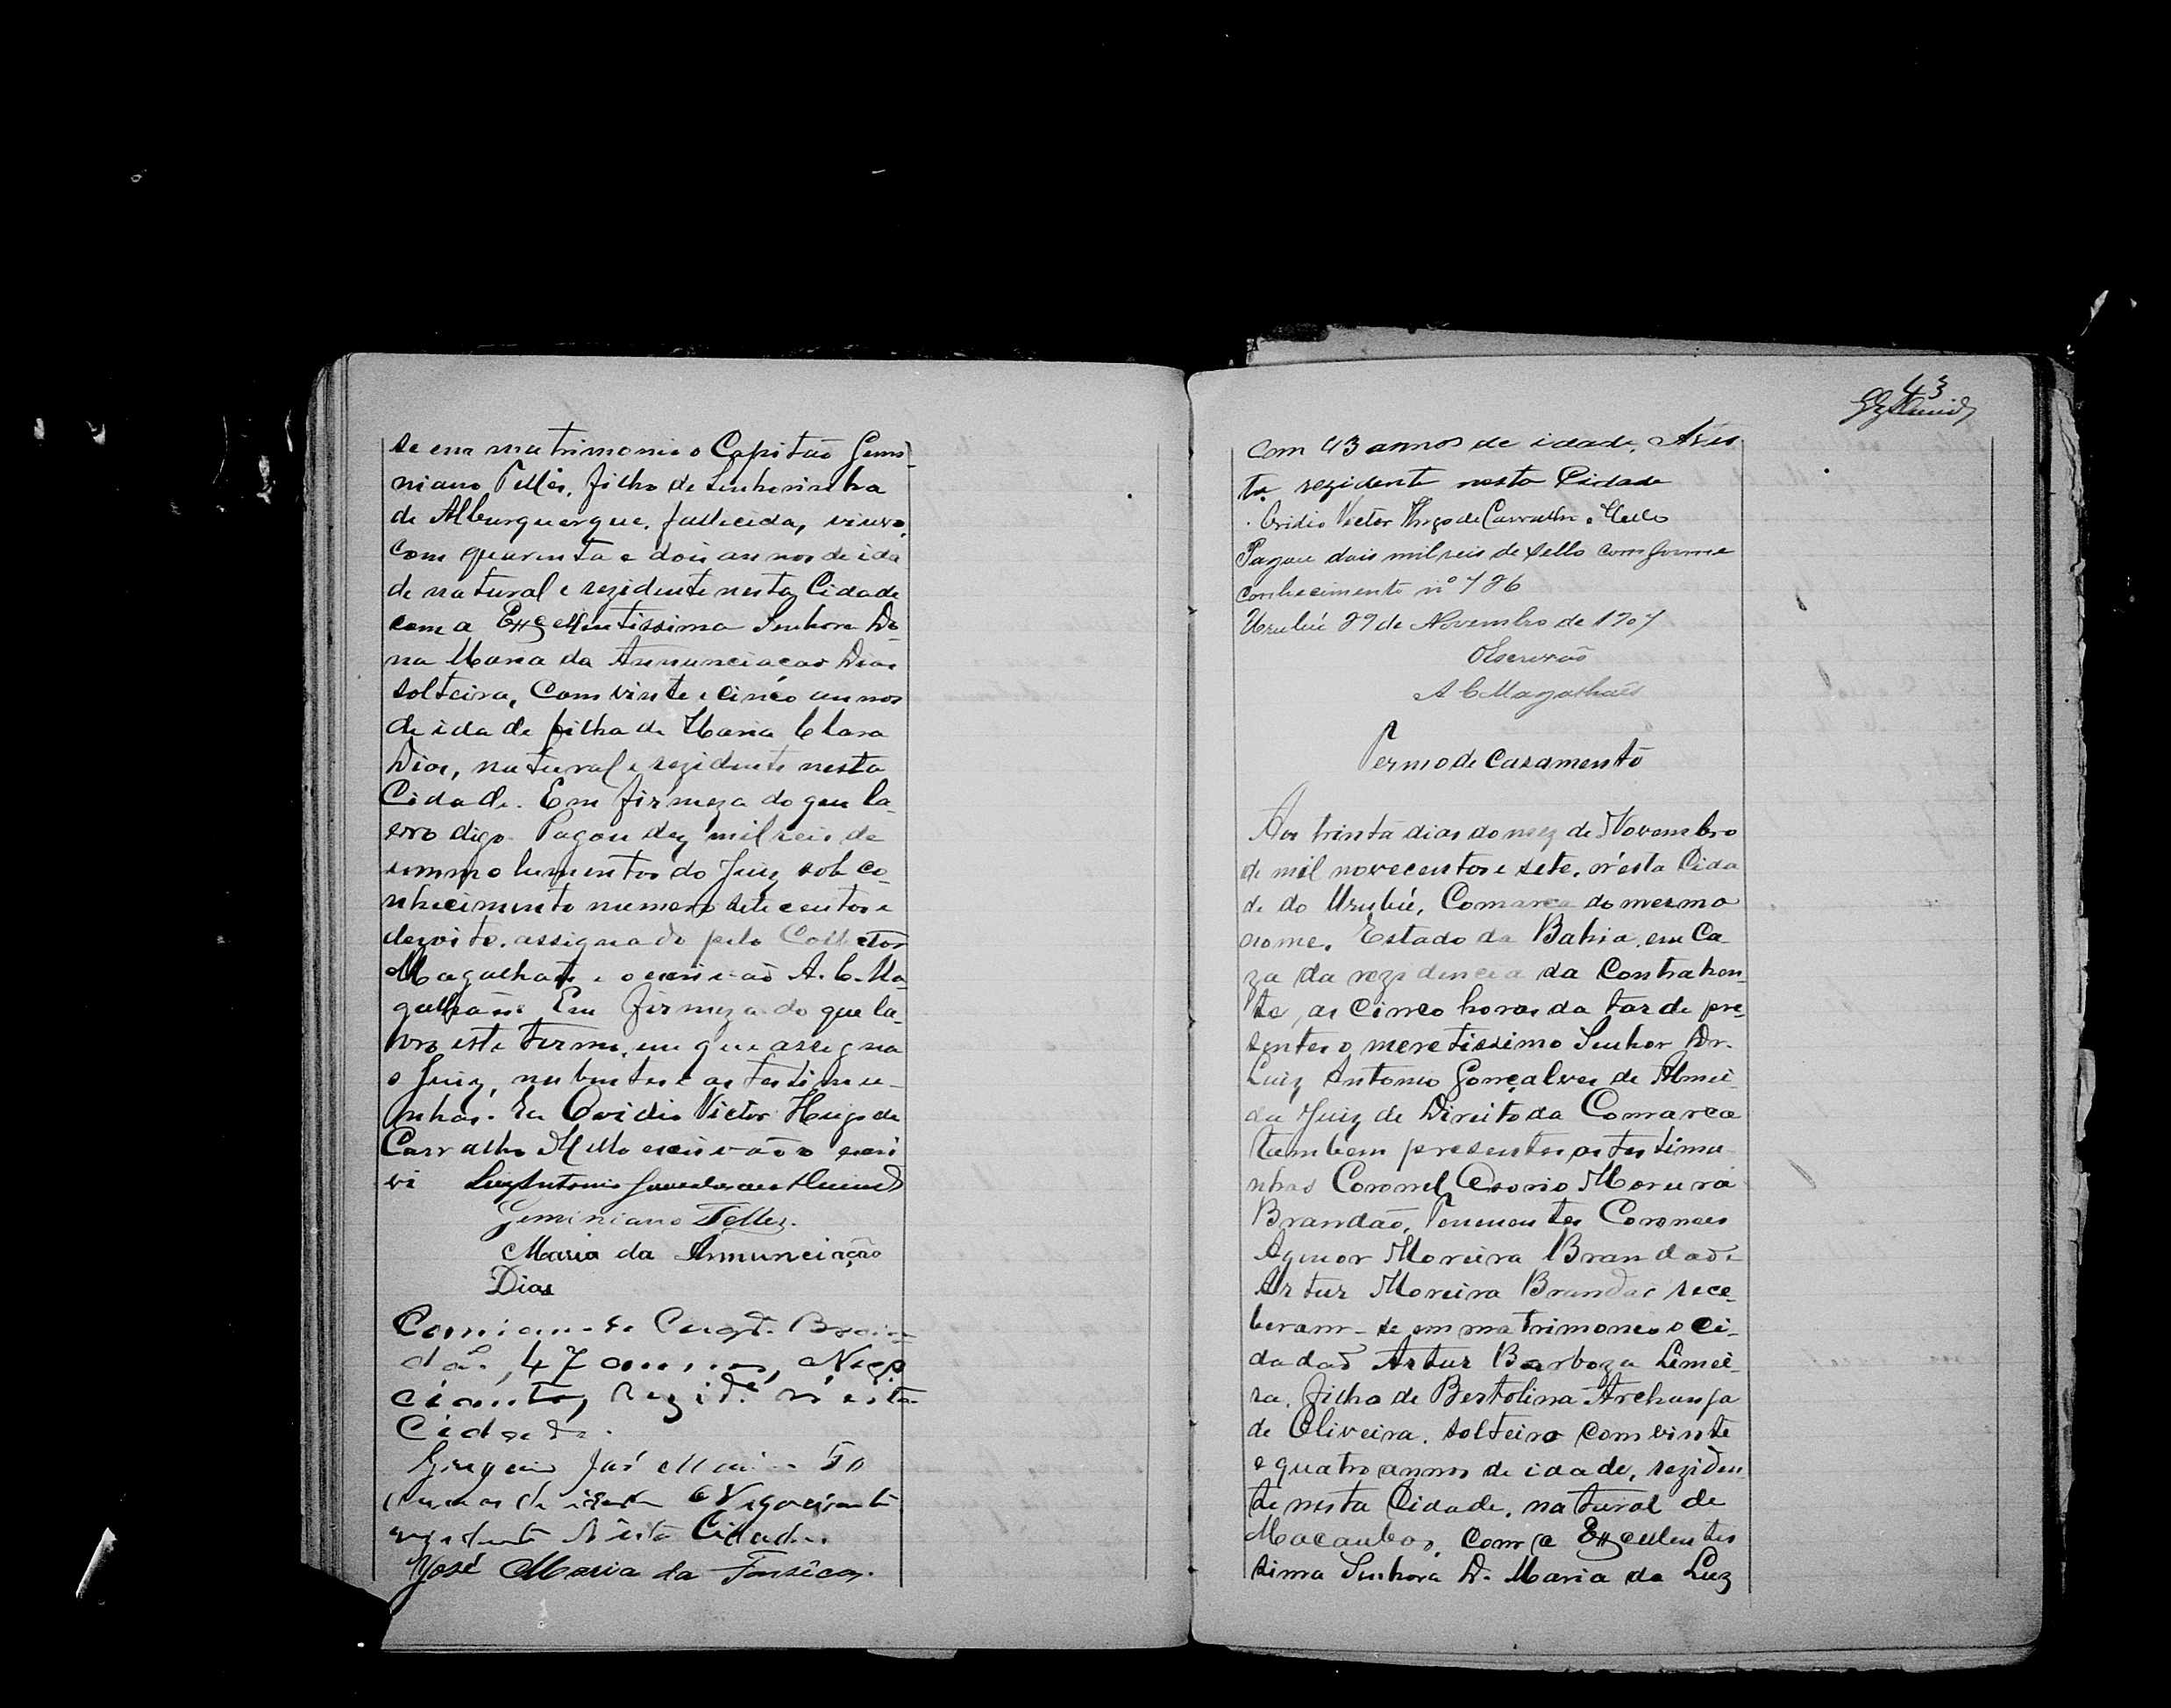 se em matrimonio o Capitão Gemi-
niano Telles, filho de Senhorinha
de Alburquerque, fallecida, viuvo,
com quarenta e dois annos de ida
de natural e rezidente nesta Cidade
com a Excellentissima Senhora Do-
na Maria da Annunciacao Dias
solteira, com vinte e cinco annos
de idade filha de Maria Clara
Dias, natural e rezidente nesta
Cidade. Em firmeza do que la-
vro digo. Pagou dez mil reis de
emmolumentos do Juiz sob co-
nhecimento numero sete centos e
dezoito, assignado pelo Collector
Magalhães e o escrivão A. C. Ma-
galhães. Em firmeza do que la-
vro este termo, em que assigna
o Juiz, nubentes e as testimu-
nhas. Eu Ovidio Victor Hugo de
Carvalho Mello escrivão o escri
vi Luiz Antonio Goncalves de Almeida
Geminiano Telles.
Maria da Annunciação
Dias
47 annos, Nego
ciante, Rezide. n'esta
Cidade.
José 50
annos de idade Negociante
rezidente N'esta Cidade.
José Maria da Fonsêca.
43
com 43 annos de idade,
rezidente nesta Cidade
Ovidio Victor Hugo de Carvalho e Mello
Pagou dois mil reis de sello comforme
conhecimento nº 726
Urubú 29 de Novembro de 1907
O Escrivão
A C Magalhães
Termo de Casamento
Aos trinta dias do mez de Novembro
de mil novecentos e sete, n'esta Cida
de do Urubú, Comarca do mesmo
nome, Estado da Bahia, em Ca-
za da rezidencia da Contrahen-
te, as cinco horas da tarde pre-
sentes o meretissimo Senhor Dr.
Luiz Antonio Gonçalves de Almei-
da Juiz de Direito da Comarca
tambem presentes as testimu-
nhas Coronel Osorio Moreira
Brandão, Tenenentes Coroneis
Agenor Moreira Brandão e
Artur Moreira Brandão rece-
beram-se em matrimoneo o ci-
dadaõ Artur Barboza Limei-
ra, filho de Bertolina Archanja
de Oliveira, solteiro com vinte
e quatro annos de idade, reziden
te nesta Cidade, natural de
Macaubas, com a Excellentes
sima Senhora D. Maria da Luz